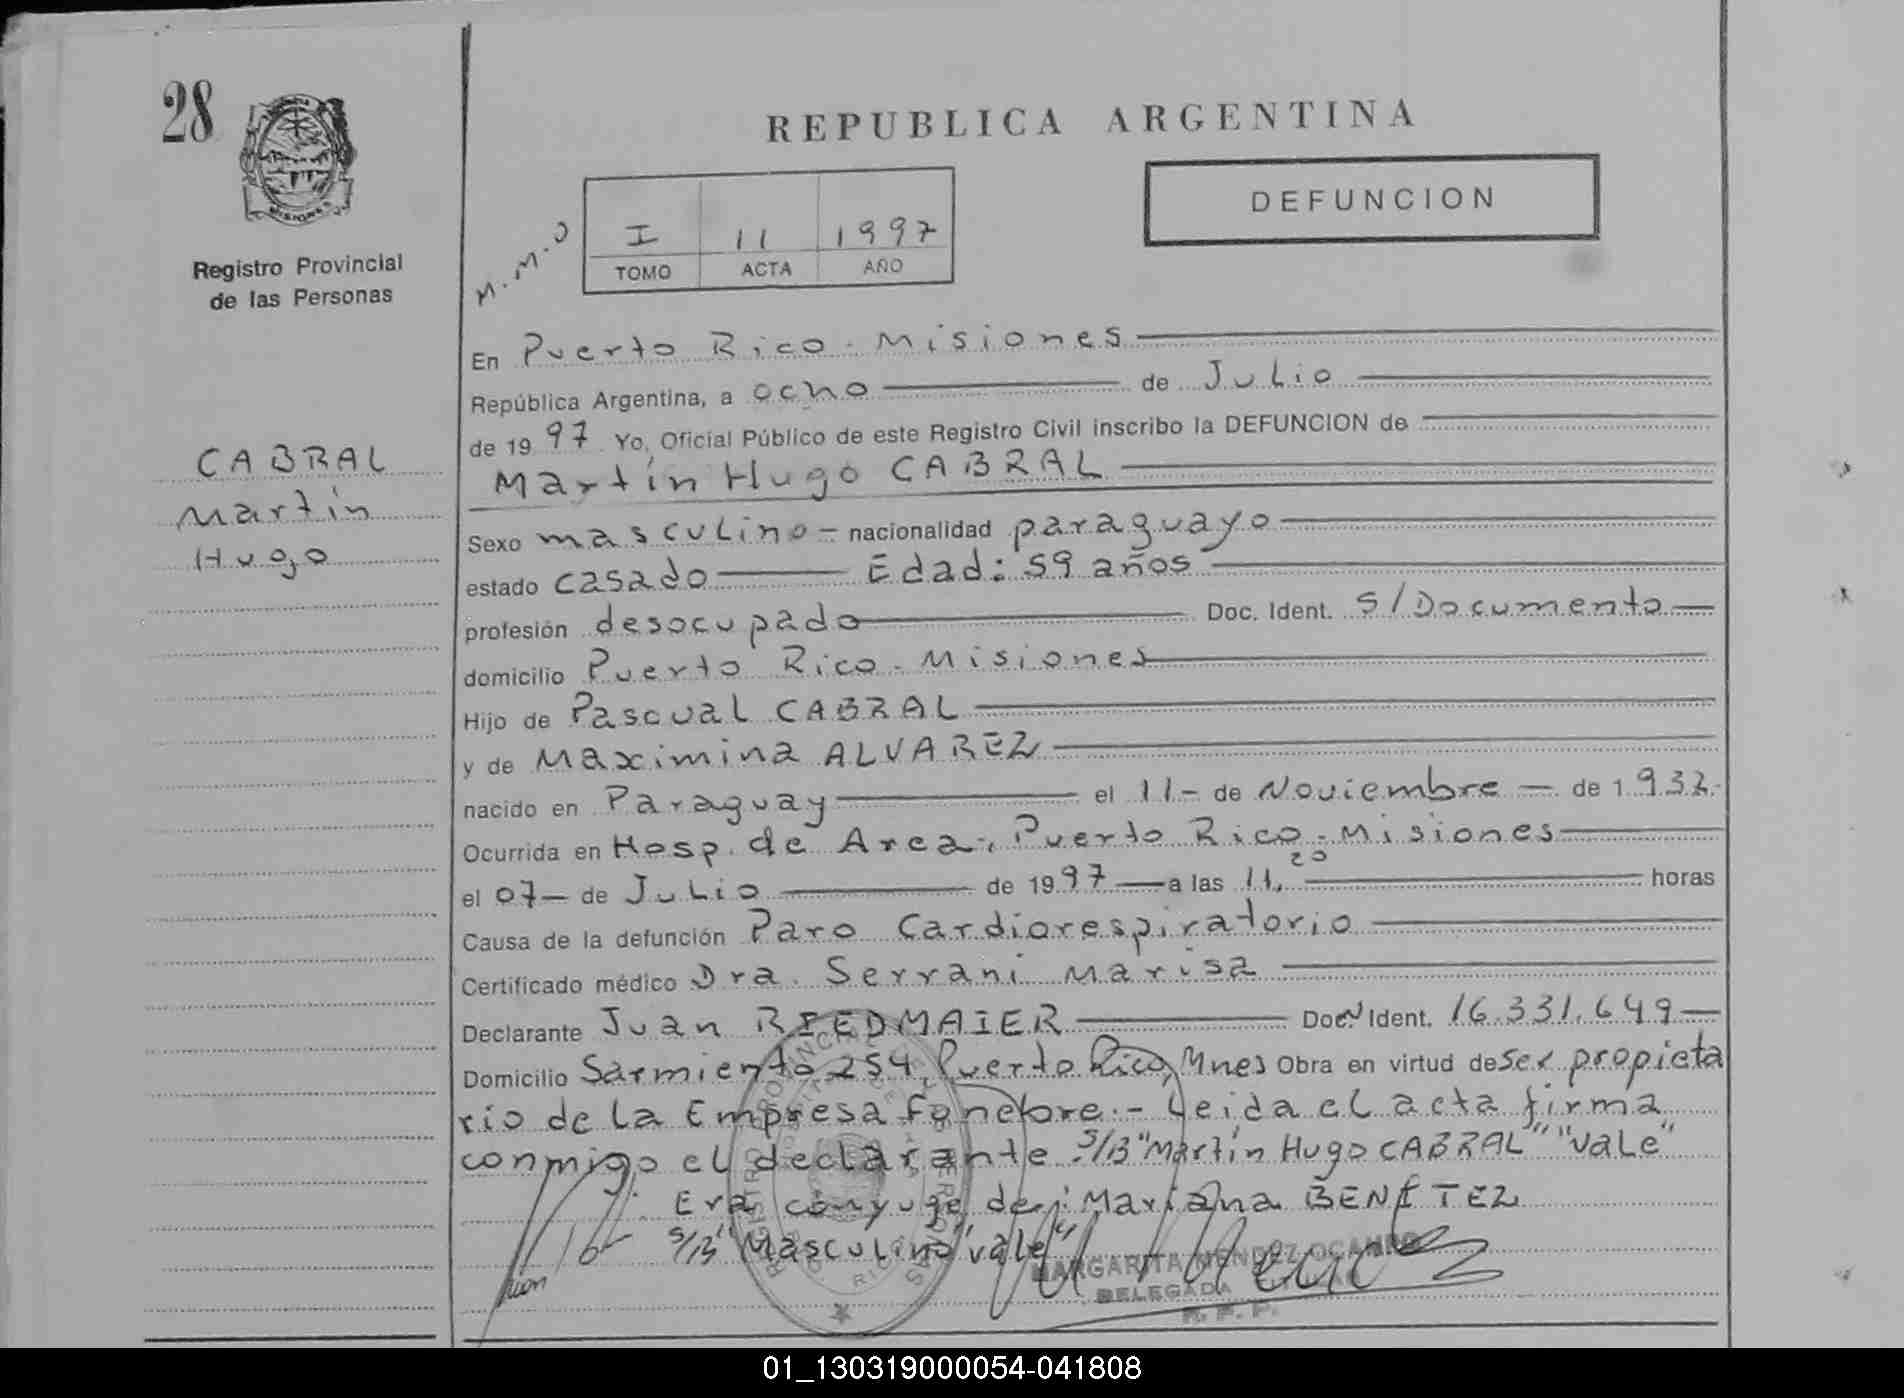 28
Registro Provincial
de las Personas
CABRAL
Martín
Hugo
REPUBLICA ARGENTINA
M.M.O
I 11 1997
TOMO ACTA AÑO
DEFUNCION
En Puerto Rico - Misiones
República Argentina, a ocho de Julio
de 1997 Yo, Oficial Público de este Registro Civil inscribo la DEFUNCION de
Martín Hugo CABRAL
Sexo masculino - nacionalidad paraguayo
estado casado Edad: 59 años
profesión desocupado Doc. Ident. S/Documento
domicilio Puerto Rico - Misiones
Hijo de Pascual CABRAL
y de Maximina ALVAREZ
nacido en Paraguay el 11 - de Noviembre - de 1932.
Ocurrida en Hosp. de Area, Puerto Rico - Misiones
el 07 - de Julio de 1997 a las 11,20 horas
Causa de la defunción Paro Cardiorespiratorio
Certificado médico Dra. Serrani Marisa
Declarante Juan RIEDMAIER Doc. Ident. 16.331.649
Domicilio Sarmiento 254, Puerto Rico, Mnes Obra en virtud de ser propieta
rio de la Empresa Funebre.- Leida el acta firma
conmigo el declarante S/B "Martín Hugo CABRAL" "Vale"
Era cónyuge de: Mariana BENITEZ
S/B "Masculino" vale"
MARGARITA MENDEZ OCAMPO
DELEGADA
R. P. P.
01_130319000054-041808